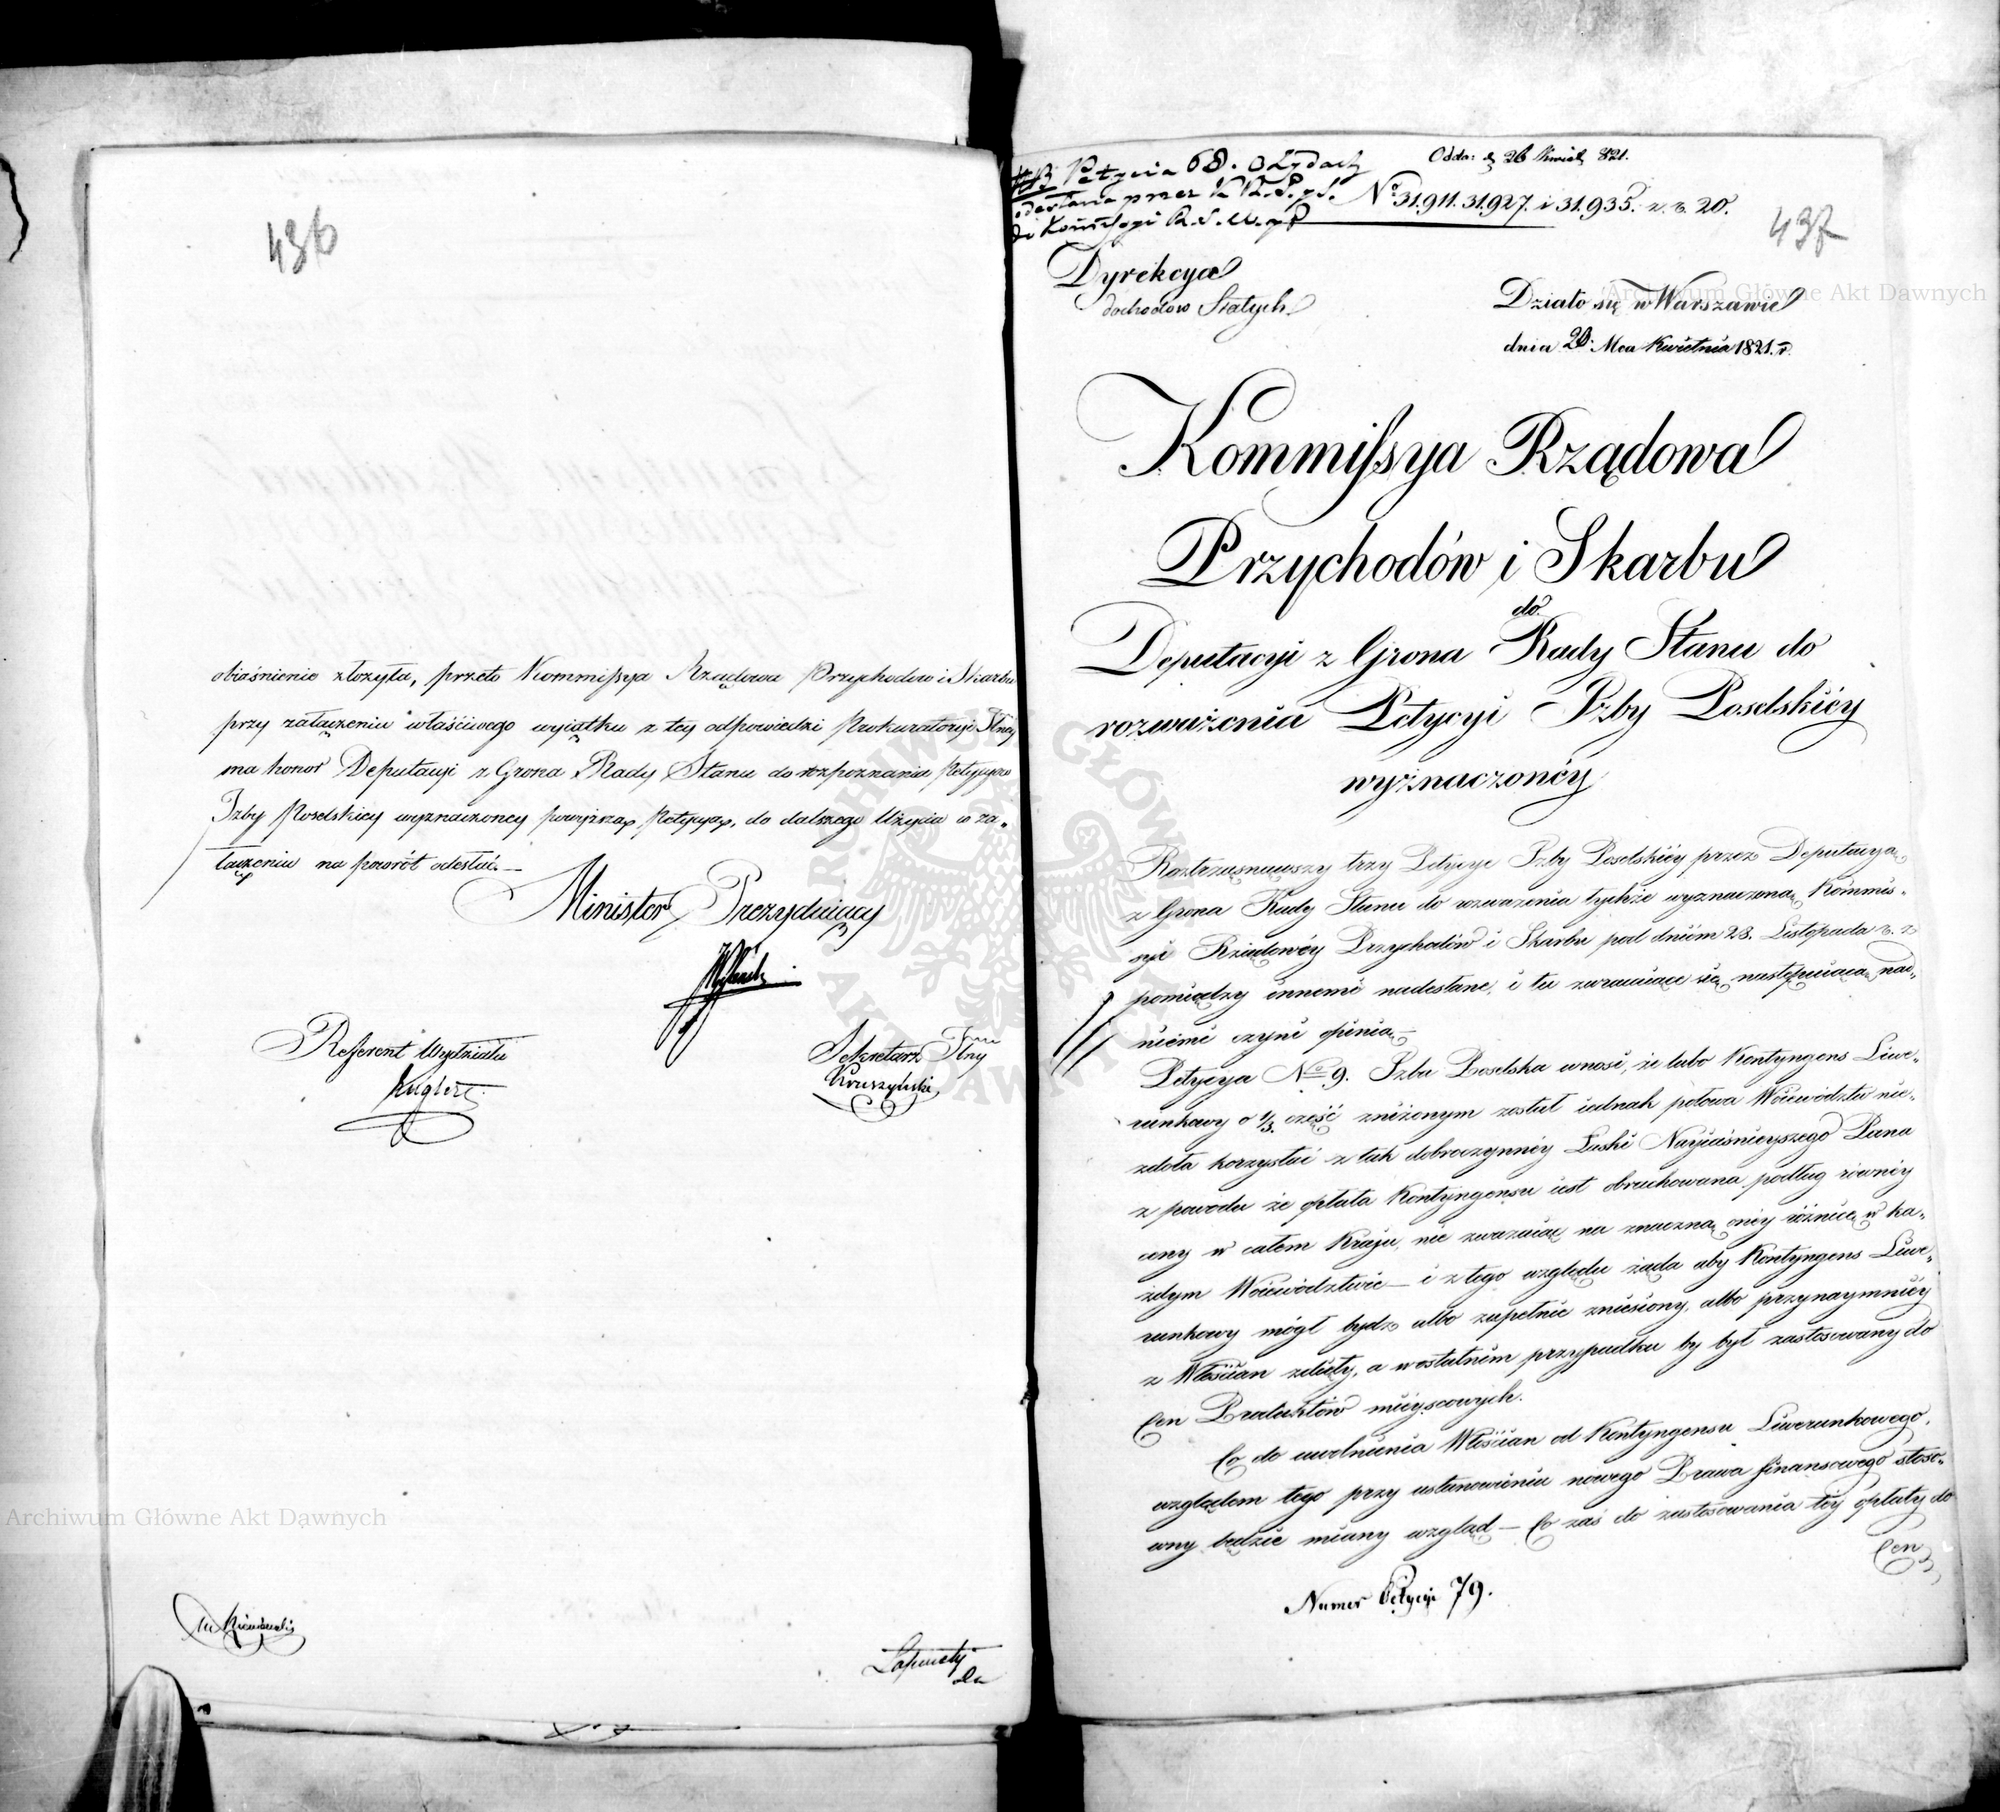 436
obiaśnienie złożyła, przeto Kommissya Rządowa Przychodow i Skarbu
przy załączeniu właściwego wyiątku z tey odpowiedzi Prokuratoryi Jlney
ma honor Deputacyi z Grona Rady Stanu do rozpoznania Petycyow
Izby Poselskiey wyznaczoney powyższą Petycyą, do dalszego użycia w za-
łączeniu na powrót odesłać.—
Minister Prezyduiący
Referent Wydziału
Sekretarz Jlny
Kruszyński
437
Odda: d. 26 Kwiet: 821.
NB Petycia 68. o Żydach
odesłana przez K R. P. y S.
do Kommissyi R. S. W. y P
No 31.911. 31.927. i 31.935. z. r. 20.
Dyrekcya
dochodow Stałych
Działo się w Warszawie
dnia 20. Mca Kwietnia 1821. r.
Kommissya Rządowa
Przychodów i Skarbu
do
Deputacyi z Grona Rady Stanu do
rozważenia Petycyi Izby Poselskiéy
wyznaczonéy
Roztrząsnąwszy trzy Petycye Izby Poselskiéy przez Deputacyą
z Grona Rady Stanu do rozważenia tychże wyznaczoną Kommis-
syi Rządowéy Przychodów i Skarbu pod dniem 28. Listopada r. z
pomiędzy innemi nadesłane, i tu zwracaiące się, następuiącą nad
niemi czyni opinią—
Petycya No 9. Izba Poselska wnosi, że lubo Kontyngens Liwe-
runkowy o 1/3. część zniżonym został iednak połowa Woiewództw nie-
zdoła korzystać z tak dobroczynnéy Łaski Nayiaśnieyszego Pana
z powodu że opłata Kontyngensu iest obrachowana podług równéy
ceny w całem Kraju, nie zważaiąc na znaczną onéy różnicę w ka-
żdym Woiewództwie — i z tego względu żąda aby Kontyngens Liwe-
runkowy mógł bydz albo zupełnie zniesiony, albo przynaymniéy
z Włościan zdięty, a w ostatnim przypadku by był zastosowany do
Cen Produktów mieyscowych.
Co do uwolnienia Włościan od Kontyngensu Liwerunkowego,
względem tego przy ustanowieniu nowego Prawa finansowego stoso-
wny będzie miany wzgląd — Co zaś do zastosowania téy opłaty do
Cen
Numer Petycyi 79.
Archiwum Główne Akt Dawnych
Archiwum Główne Akt Dawnych
ARCHIWUM GŁÓWNE AKT DAWNYCH